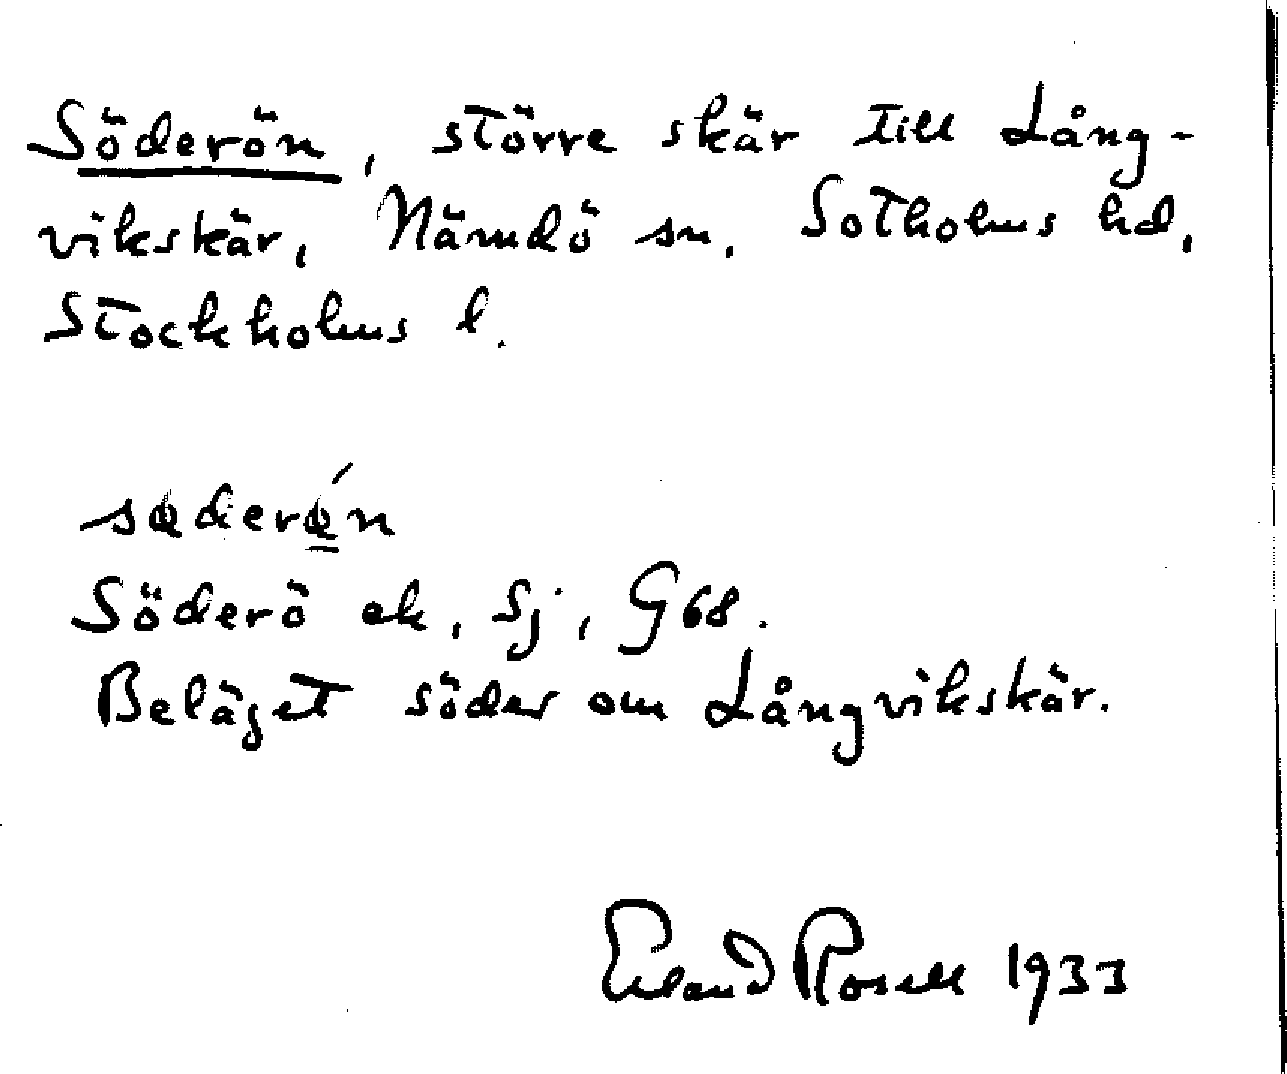 Söderön, större skär till Lång-
vikskär, Nämdö sn, Sotholms hd,
Stockholms l.
sød́erǿn
Söderö ek, Sj, G68.
Beläget söder om Långvikskär.
Erland Rosell 1933